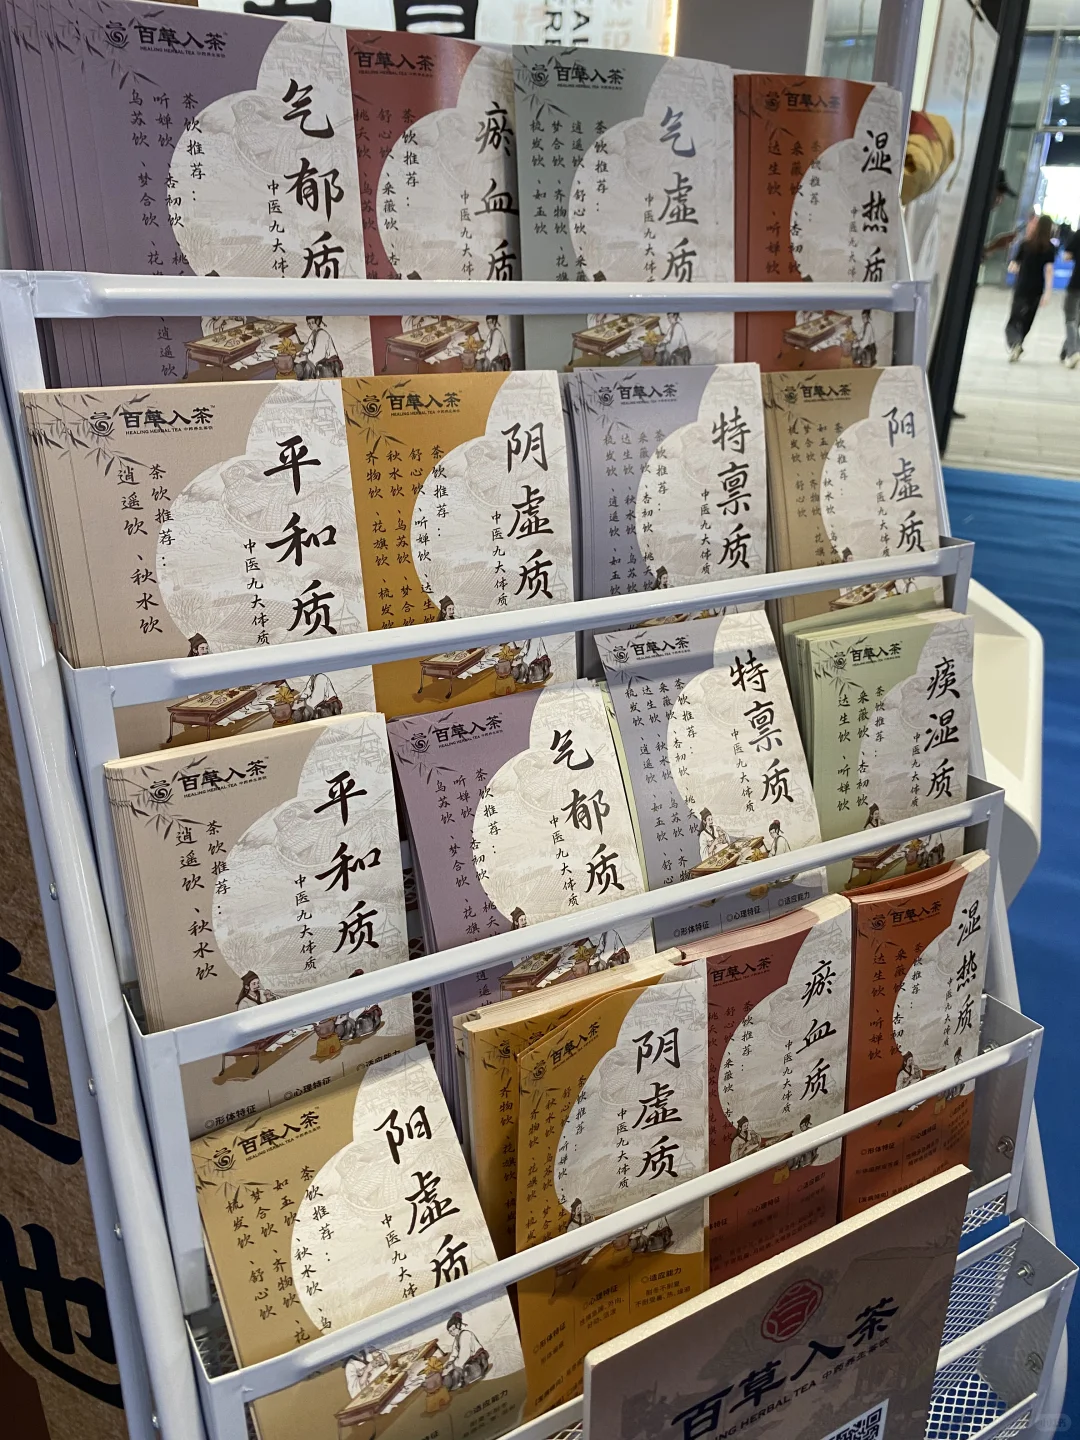 百草入茶
HEALING HERBAL TEA 中药养生茶饮
气郁质
中医九大体
茶饮推荐：
听婵饮、杏初饮、桃
乌苏饮、梦合饮、花
逍遥饮
百草入茶
瘀血质
中医九大体
茶饮推荐：
舒心饮、采薇饮、
桃夭饮、乌苏饮
百草入茶
气虚质
中医九大体质
茶饮推荐：
逍遥饮、舒心饮、采薇
梦合饮、齐物饮、花旗
梳发饮、如玉饮
百草入茶
湿热质
中医九大体
茶饮推荐：
采薇饮、杏初饮
达生饮、听婵饮
百草入茶
HEALING HERBAL TEA 中药养生茶饮
平和质
中医九大体质
茶饮推荐：
逍遥饮、秋水饮
百草入茶
HEALING HERBAL TEA 中药养生茶饮
阴虚质
中医九大体质
茶饮推荐：
舒心饮、听婵饮、达生
秋水饮、乌苏饮、梦合
齐物饮、花旗饮、梳发
百草入茶
特禀质
中医九大体质
茶饮推荐：
采薇饮、杏初饮、桃夭
达生饮、秋水饮、乌苏饮
梳发饮、逍遥饮、如玉
百草入茶
阳虚质
中医九大体质
茶饮推荐：
如玉饮、秋水饮
梦合饮、齐物饮
梳发饮、舒心饮
百草入茶
HEALING HERBAL TEA 中药养生茶饮
平和质
中医九大体质
茶饮推荐：
逍遥饮、秋水饮
◎形体特征
◎心理特征
◎适应能力
百草入茶
气郁质
中医九大体质
茶饮推荐：
听婵饮、杏初饮、桃夭
乌苏饮、梦合饮、花旗
百草入茶
特禀质
中医九大体质
茶饮推荐：
采薇饮、杏初饮、桃夭饮
达生饮、秋水饮、乌苏饮、齐
逍遥饮、如玉
◎形体特征
◎心理特征
◎适应能力
百草入茶
痰湿质
中医九大体质
茶饮推荐：
采薇饮、杏初饮
达生饮、听婵饮
百草入茶
HEALING HERBAL TEA 中药养生茶饮
阳虚质
中医九大体
茶饮推荐：
如玉饮、秋水饮、
梦合饮、齐物饮、花
梳发饮、舒心饮
◎适应能力
百草入茶
阴虚质
中医九大体质
茶饮推荐：
舒心饮、听婵饮、达
秋水饮、乌苏饮
齐物饮、花旗饮、梳发
◎形体特征
◎心理特征
◎适应能力
百草入茶
瘀血质
中医九大体质
茶饮推荐：
舒心饮、采薇饮、杏
桃夭饮
◎心理特征
◎适应能力
百草入茶
湿热质
中医九大体质
茶饮推荐：
采薇饮、杏初饮
达生饮、听婵饮
◎形体特征
◎心理特征
百草入茶
HEALING HERBAL TEA 中药养生茶饮